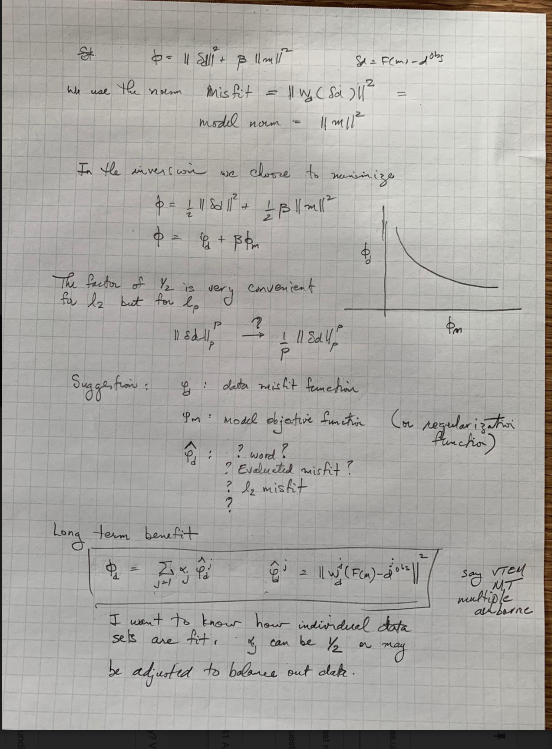 φ = ‖δd‖² + β‖m‖²   δd = F(m) - d^obs
We use the norm   Misfit = ‖W_d(δd)‖² =
model norm = ‖m‖²
In the inversion we choose to minimize
φ = 1/2 ‖δd‖² + 1/2 β‖m‖²
φ = φ_d + βφ_m
φ_d
φ_m
The factor of 1/2 is very convenient
for l₂ but for l_p
‖δd‖_p^p →? 1/p ‖δd‖_p^p
Suggestion: φ_d : data misfit function
φ_m : model objective function (or regularization
function)
φ̂_d : ? word ?
? Evaluated misfit ?
? l₂ misfit
?
Long term benefit
φ_d = Σ_{j=1} α_j φ̂_d^j   φ̂_d^j = ‖W_d^j(F(m) - d^j obs)‖²
say VTEM
MT
multiple
airborne
I want to know how individual data
sets are fit. α_j can be 1/2 or may
be adjusted to balance out data.